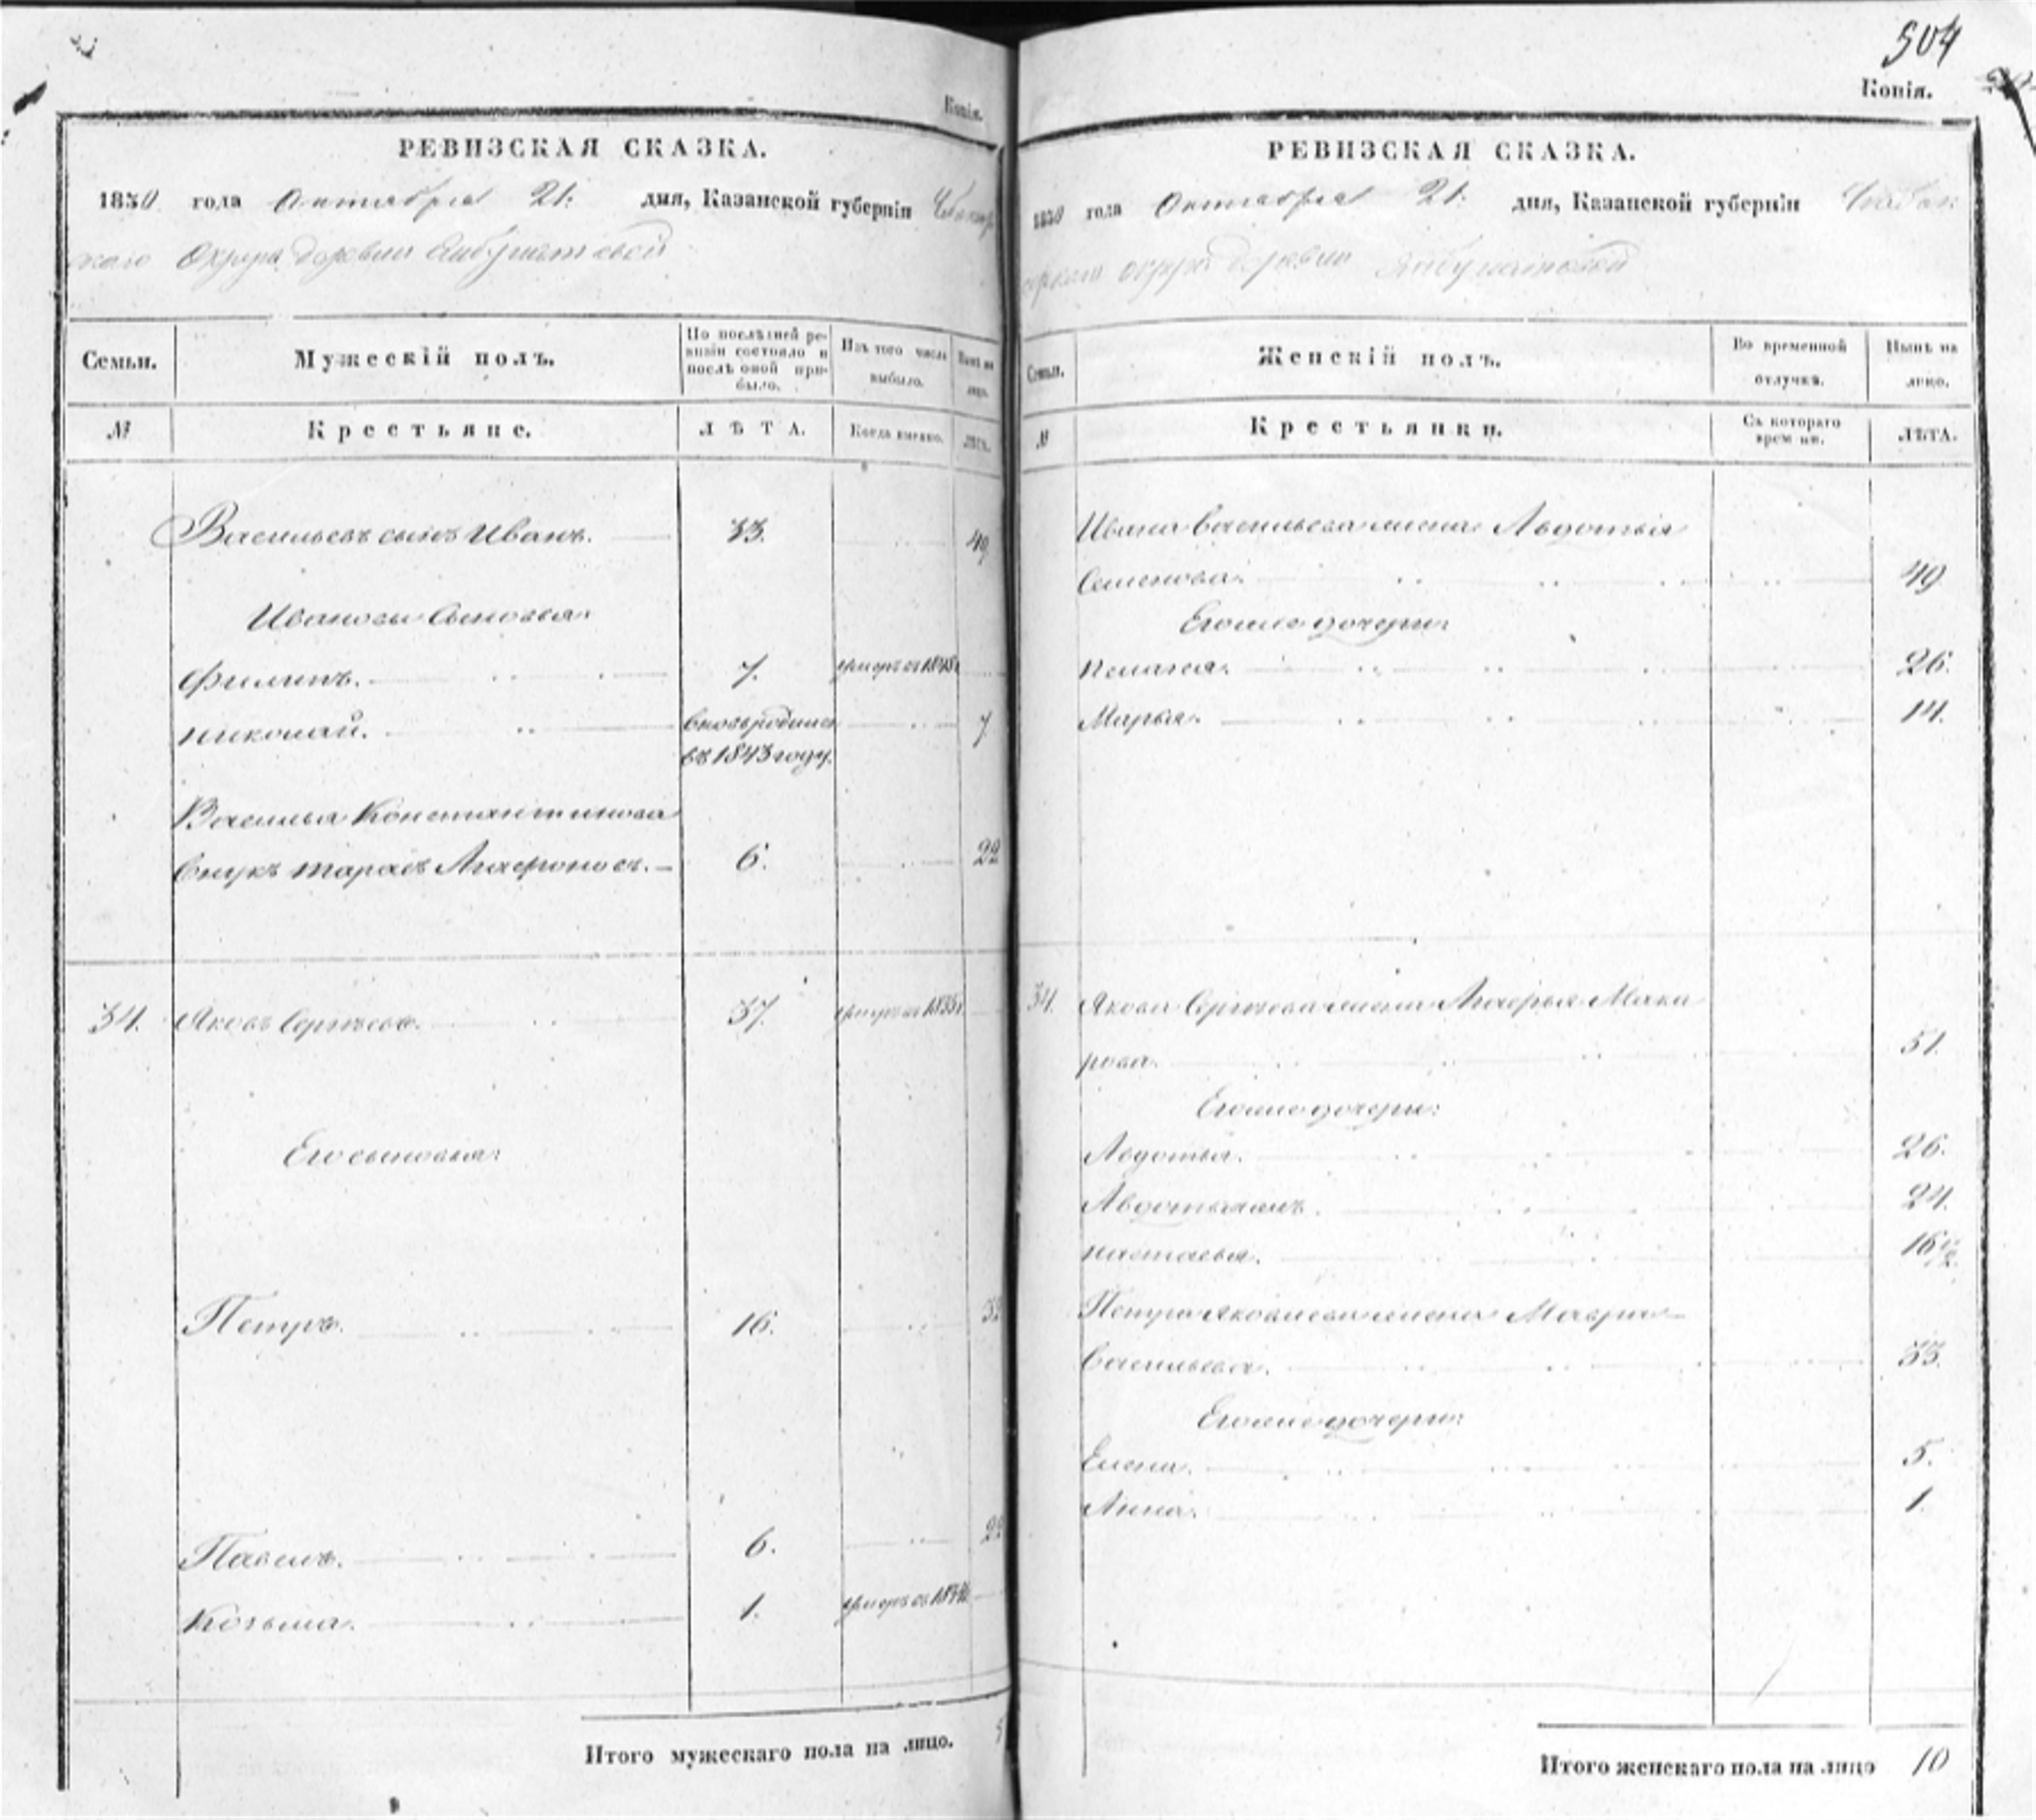 Копія.
РЕВИЗСКАЯ СКАЗКА.
1850 года Октября 21. дня, Казанской губерніи Чебоксар
скаго Округа деревни
Семьи. Мужескій полъ. По послѣдней ре-
визіи состояло и
послѣ оной при-
было. Изъ того числа
выбыло. Нынѣ на
лицо.
№ Крестьяне. ЛѢТА. Когда именно. ЛѢТА.
Васильевъ сынъ Иванъ. 33. 49
Ивановы Сыновья:
Филипъ. 7. умеръ въ
Николай. вновь родился 7
въ 1843 году.
Василья Константинова
внукъ Тарасъ Агафоновъ. 6. 22
34. Яковъ Сергѣевъ. 37. умеръ въ 1835
Его сыновья:
Петръ. 16. 32
Павелъ. 6. 22
Козьма. 1. умеръ въ
Итого мужескаго пола на лицо. 5
504
Копія.
РЕВИЗСКАЯ СКАЗКА.
1850 года Октября 21. дня, Казанской губерніи Чебок
сарскаго округа деревни
Семьи. Женскій полъ. Во временной
отлучкѣ. Нынѣ на
лицо.
№ Крестьянки. Съ котораго
времени. ЛѢТА.
Ивана Васильева жена Авдотья
Семенова. 49
Егоже дочери:
Пелагея. 26.
Марья. 14.
34. Якова Сергѣева жена Агафья Мака
рова. 51.
Егоже дочери:
Авдотья. 26.
Авдотьяжъ. 24.
Настасья. 16 1/2.
Петра Яковлева жена Мавра
Васильева. 33.
Егоже дочери:
Елена. 5.
Анна. 1.
Итого женскаго пола на лицо 10